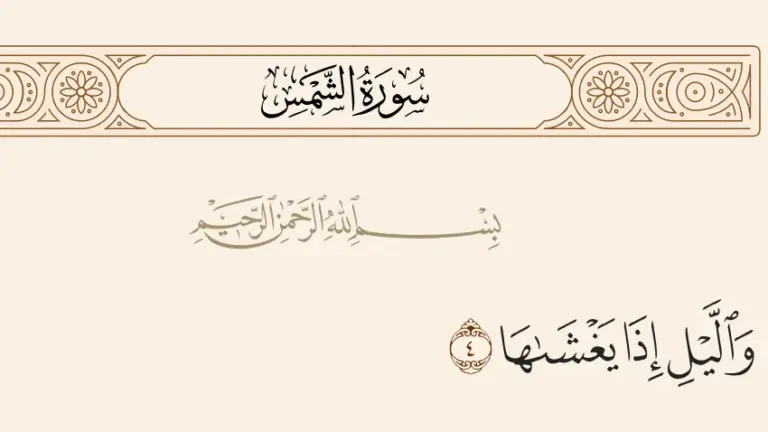 سُورَةُ الشَّمْسِ
بِسْمِ ٱللَّهِ ٱلرَّحْمَٰنِ ٱلرَّحِيمِ
وَٱلَّيْلِ إِذَا يَغْشَىٰهَا ٤